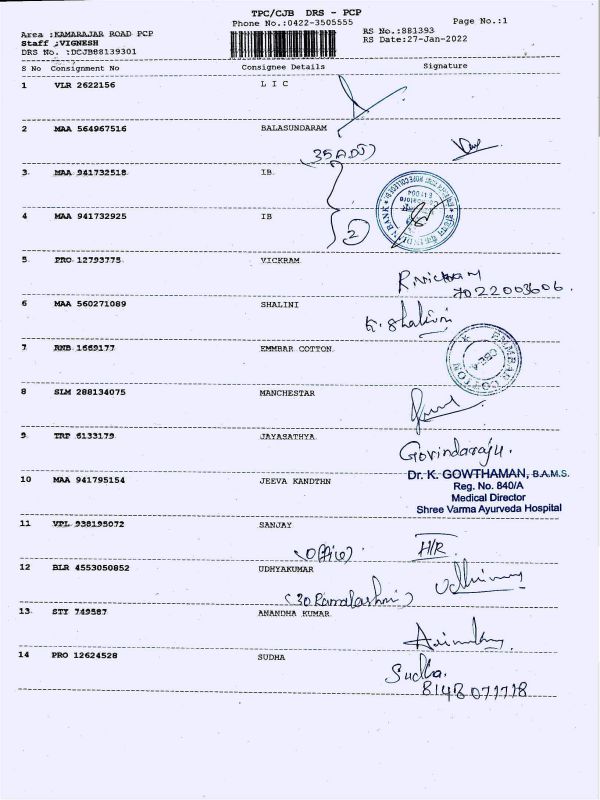 TPC/CJB DRS - PCP
Phone No.:0422-3505555
Page No.:1
Area :KAMARAJAR ROAD PCP
Staff ;VIGNESH
DRS No. :DCJB88139301
RS No.:881393
RS Date:27-Jan-2022
S No Consignment No Consignee Details Signature
1 VLR 2622156 L I C
2 MAA 564967516 BALASUNDARAM
(35 ADJ)
3 MAA 941732518 IB
4 MAA 941732925 IB
2
5 PRO 12793775 VICKRAM
R.Vickram
7022003606.
6 MAA 560271089 SHALINI
K. Shalini
7 RNB 1669177 EMMBAR COTTON
8 SLM 288134075 MANCHESTAR
9 TRP 6133179 JAYASATHYA
Govindaraju.
10 MAA 941795154 JEEVA KANDTHN
Dr. K. GOWTHAMAN, B.A.M.S.
Reg. No. 840/A
Medical Director
Shree Varma Ayurveda Hospital
11 VPL 938195072 SANJAY
(Office) H/R
12 BLR 4553050852 UDHYAKUMAR
13 STY 749587 ANANDHA KUMAR
14 PRO 12624528 SUDHA
Sudha.
8148071718